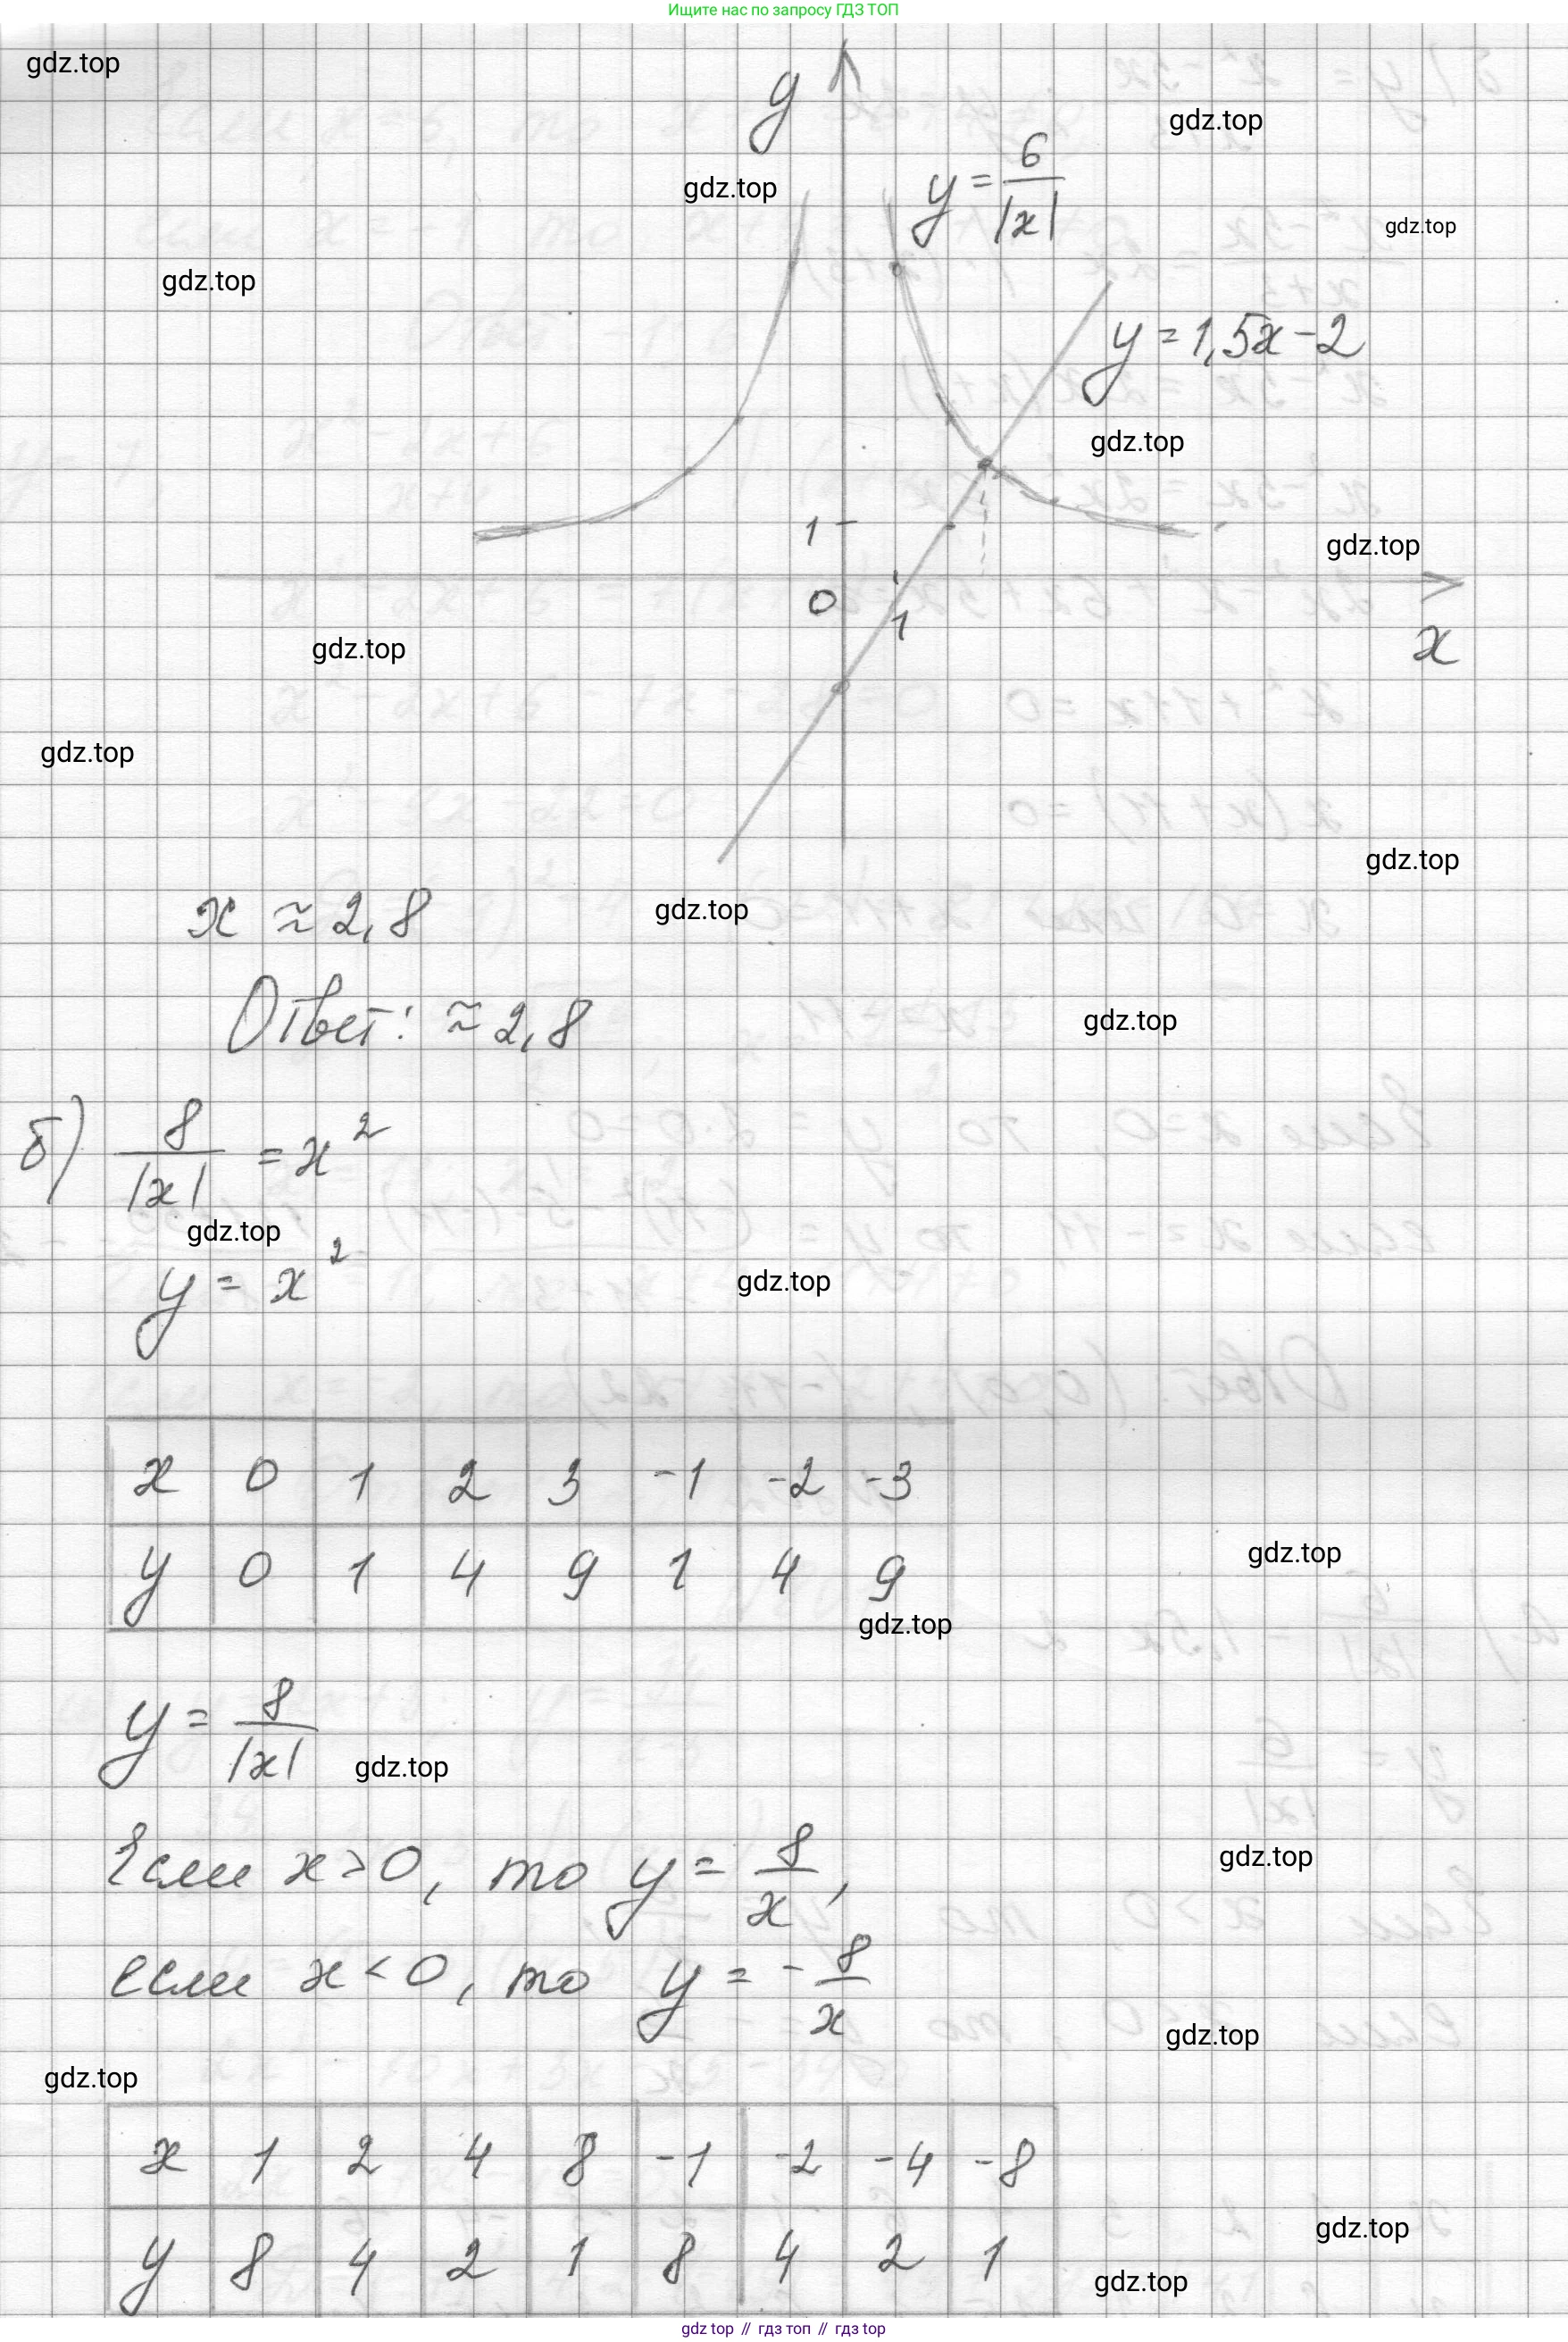 Ищите нас по запросу ГДЗ ТОП
gdz.top
y
gdz.top
y = 6/|x|
gdz.top
gdz.top
gdz.top
y = 1,5x - 2
gdz.top
1
gdz.top
0
1
x
gdz.top
gdz.top
gdz.top
x ≈ 2,8
gdz.top
Ответ: ≈ 2,8
gdz.top
б) 8/|x| = x²
gdz.top
y = x²
gdz.top
x 0 1 2 3 -1 -2 -3
gdz.top
y 0 1 4 9 1 4 9
gdz.top
y = 8/|x|
gdz.top
Если x > 0, то y = 8/x,
gdz.top
если x < 0, то y = - 8/x
gdz.top
gdz.top
x 1 2 4 8 -1 -2 -4 -8
gdz.top
y 8 4 2 1 8 4 2 1
gdz.top
gdz top // гдз топ // гдз top